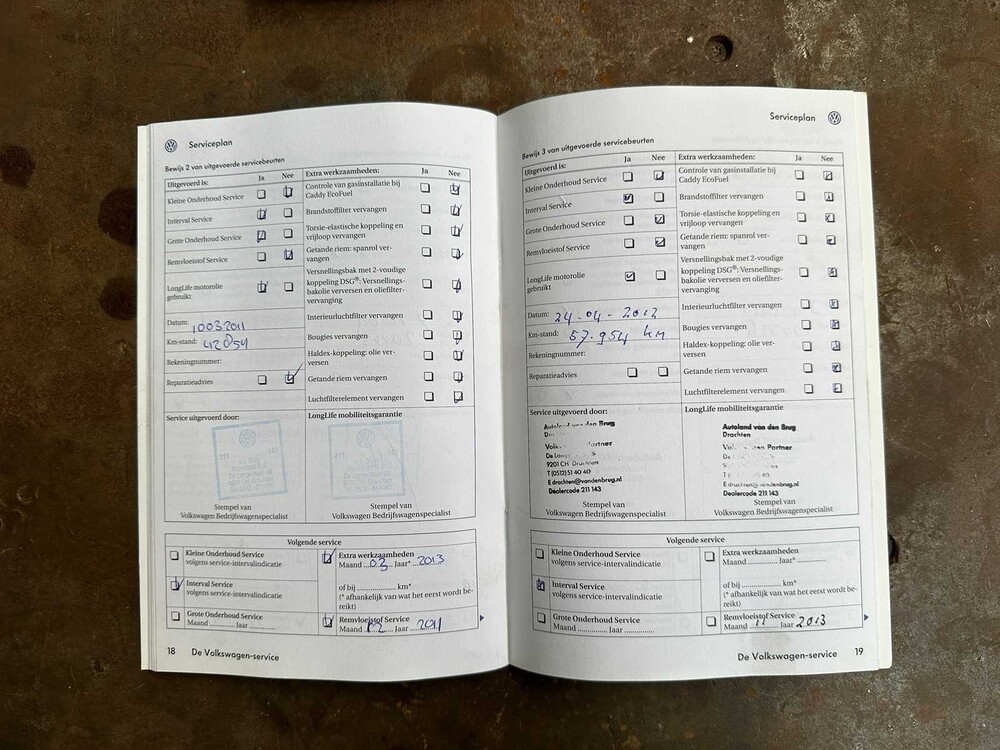 Serviceplan
Bewijs 2 van uitgevoerde servicebeurten
Uitgevoerd is: Ja Nee
Kleine Onderhoud Service
Interval Service
Grote Onderhoud Service
Remvloeistof Service
LongLife motorolie
gebruikt
Datum: 10032011
Km-stand: 42854
Rekeningnummer:
Reparatieadvies
Extra werkzaamheden: Ja Nee
Controle van gasinstallatie bij
Caddy EcoFuel
Brandstoffilter vervangen
Torsie-elastische koppeling en
vrijloop vervangen
Getande riem: spanrol ver-
vangen
Versnellingsbak met 2-voudige
koppeling DSG®: Versnellings-
bakolie verversen en oliefilter-
vervanging
Interieurluchtfilter vervangen
Bougies vervangen
Haldex-koppeling: olie ver-
versen
Getande riem vervangen
Luchtfilterelement vervangen
Service uitgevoerd door:
211
Stempel van
Volkswagen Bedrijfswagenspecialist
LongLife mobiliteitsgarantie
Stempel van
Volkswagen Bedrijfswagenspecialist
Volgende service
Kleine Onderhoud Service
volgens service-intervalindicatie
Interval Service
volgens service-intervalindicatie
Grote Onderhoud Service
Maand ........... Jaar ...........
Extra werkzaamheden
Maand ...03... Jaar* ...2013
of bij ..................... km*
(* afhankelijk van wat het eerst wordt be-
reikt)
Remvloeistof Service
Maand Jaar 2011
18 De Volkswagen-service
Serviceplan
Bewijs 3 van uitgevoerde servicebeurten
Uitgevoerd is: Ja Nee
Kleine Onderhoud Service
Interval Service
Grote Onderhoud Service
Remvloeistof Service
LongLife motorolie
gebruikt
Datum: 24-04-2012
Km-stand: 57.954 km
Rekeningnummer:
Reparatieadvies
Extra werkzaamheden: Ja Nee
Controle van gasinstallatie bij
Caddy EcoFuel
Brandstoffilter vervangen
Torsie-elastische koppeling en
vrijloop vervangen
Getande riem: spanrol ver-
vangen
Versnellingsbak met 2-voudige
koppeling DSG®: Versnellings-
bakolie verversen en oliefilter-
vervanging
Interieurluchtfilter vervangen
Bougies vervangen
Haldex-koppeling: olie ver-
versen
Getande riem vervangen
Luchtfilterelement vervangen
Service uitgevoerd door:
9201 CH Drachten
T (0512) 51 40 40
E drachten@vandenbrug.nl
Dealercode 211 143
Stempel van
Volkswagen Bedrijfswagenspecialist
LongLife mobiliteitsgarantie
Autoland van den Brug
Drachten
Partner
Dealercode 211 143
Stempel van
Volkswagen Bedrijfswagenspecialist
Volgende service
Kleine Onderhoud Service
volgens service-intervalindicatie
Interval Service
volgens service-intervalindicatie
Grote Onderhoud Service
Maand ............... Jaar ...............
Extra werkzaamheden
Maand ............ Jaar* ............
of bij ..................... km*
(* afhankelijk van wat het eerst wordt be-
reikt)
Remvloeistof Service
Maand 11 Jaar 2013
De Volkswagen-service 19